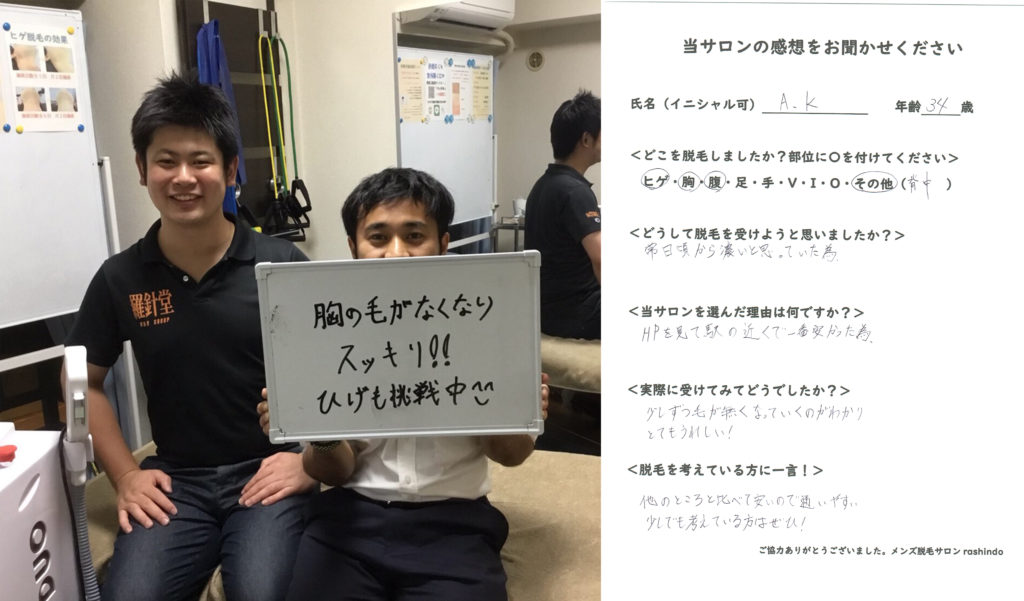 ヒゲ脱毛の効果
羅針堂
胸の毛がなくなり
スッキリ!!
ひげも挑戦中
ono
当サロンの感想をお聞かせください
氏名（イニシャル可） A.K 年齢 34 歳
＜どこを脱毛しましたか？部位に〇を付けてください＞
ヒゲ・胸・腹・足・手・V・I・O・その他（背中）
＜どうして脱毛を受けようと思いましたか？＞
常日頃から濃いと思っていた為
＜当サロンを選んだ理由は何ですか？＞
HPを見て駅の近くで一番安かった為
＜実際に受けてみてどうでしたか？＞
少しずつ毛が無くなっていくのがわかり
とてもうれしい！
＜脱毛を考えている方に一言！＞
他のところと比べて安いので通いやすい
少しでも考えている方はぜひ！
ご協力ありがとうございました。メンズ脱毛サロン rashindo